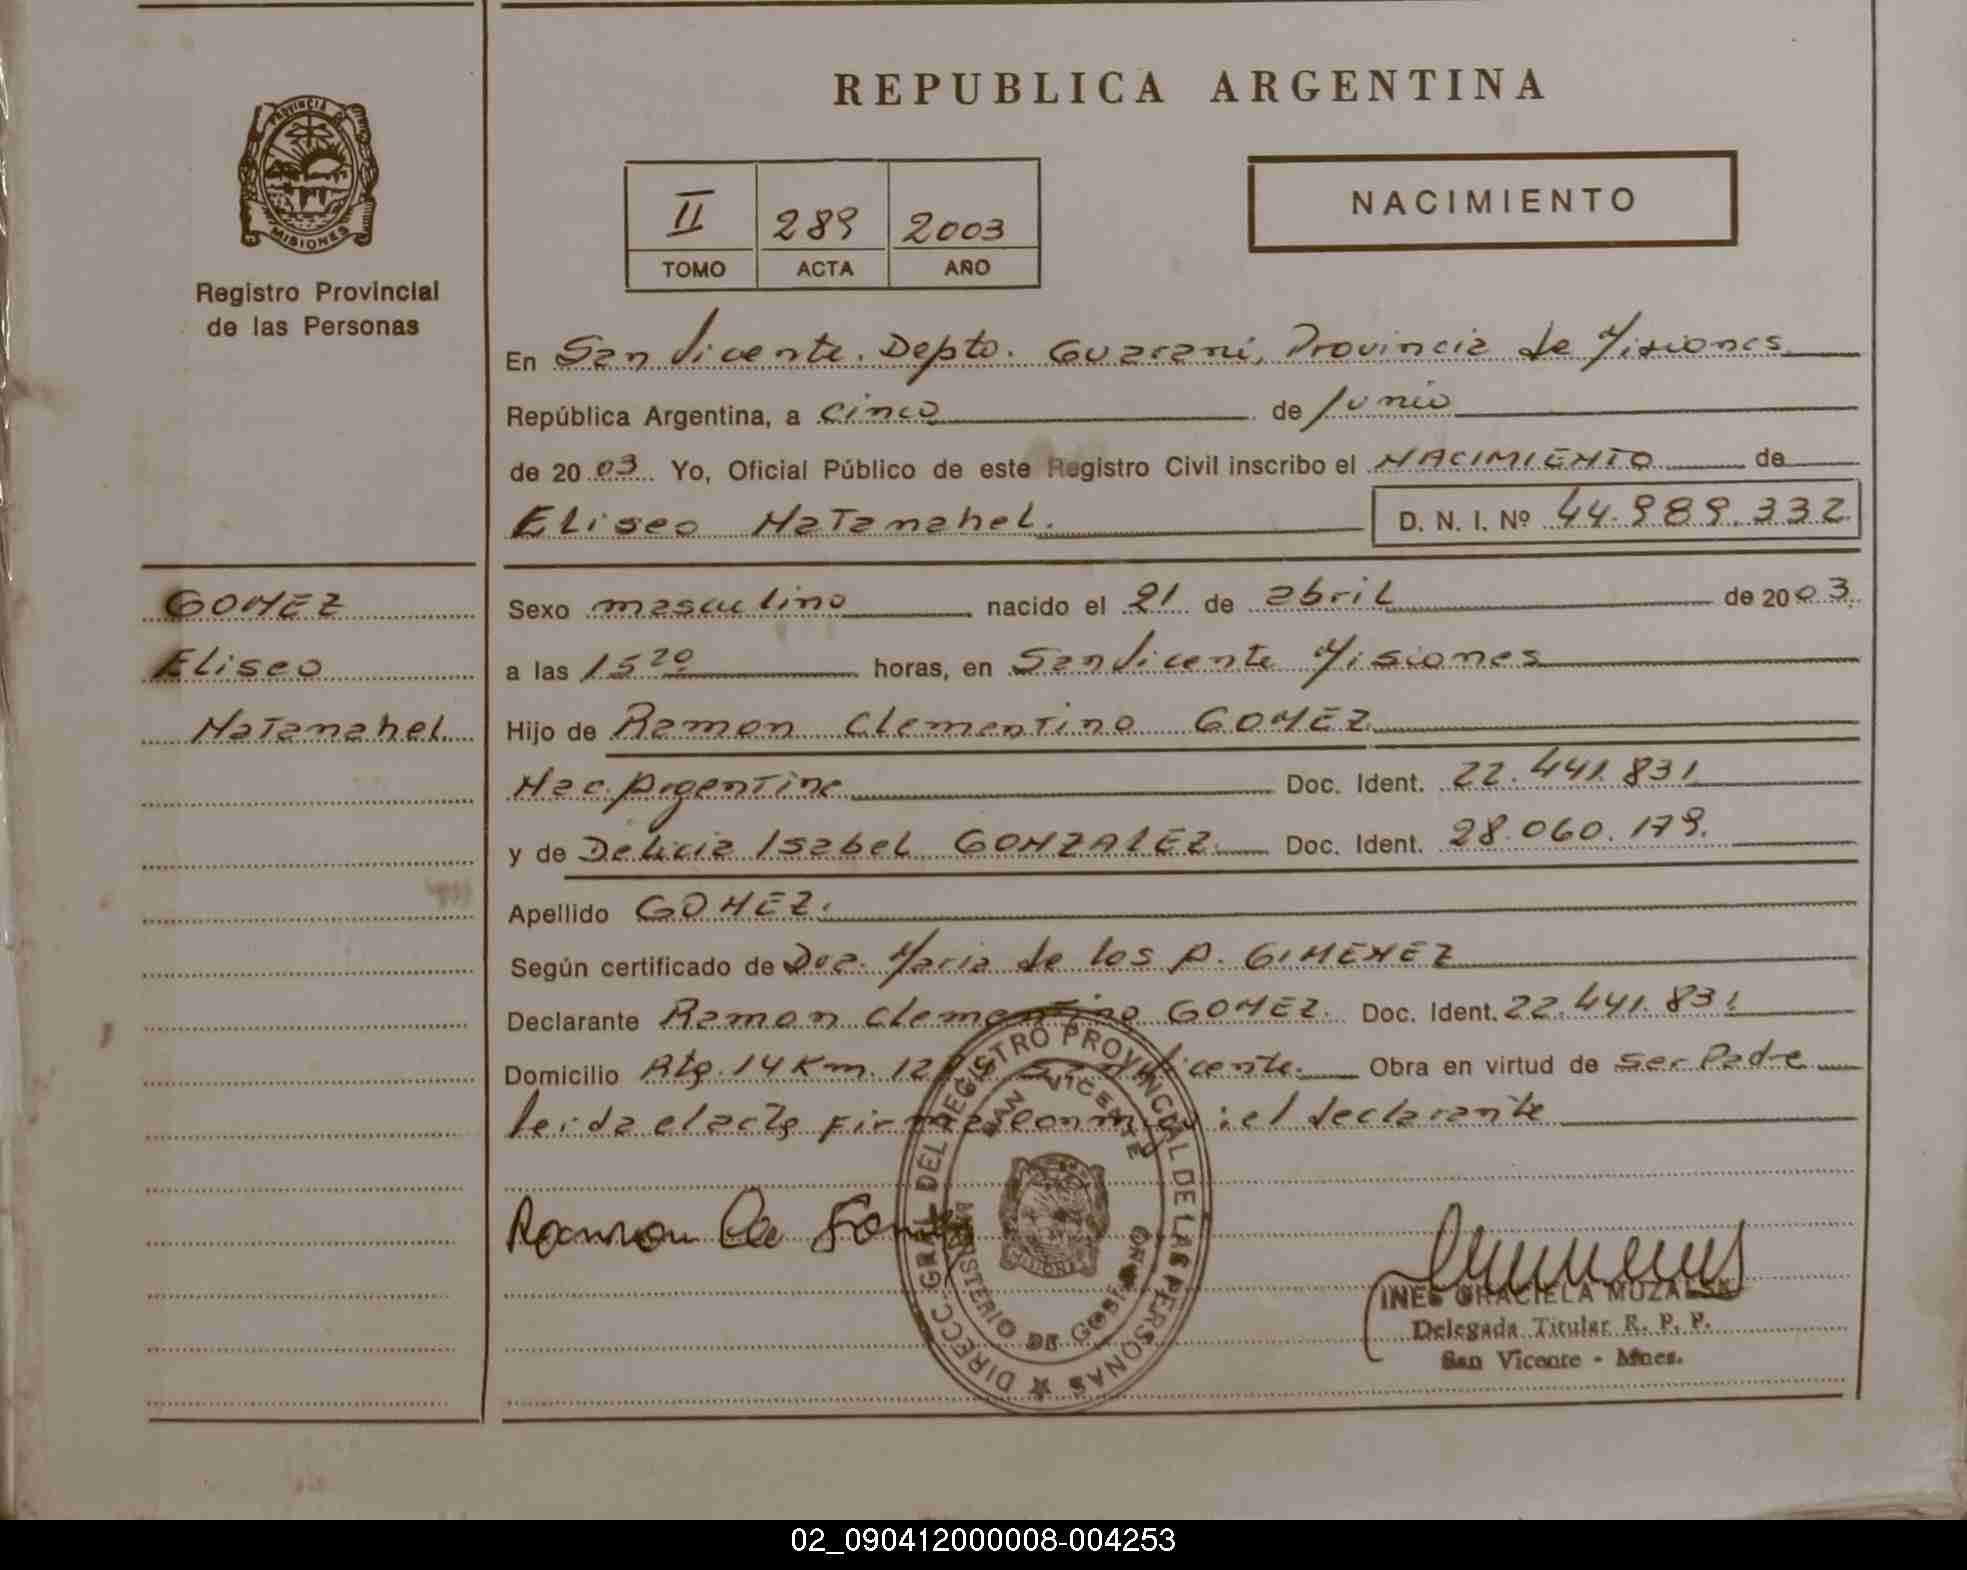 REPUBLICA ARGENTINA
PROVINCIA DE MISIONES
Registro Provincial
de las Personas
II 289 2003
TOMO ACTA AÑO
NACIMIENTO
En San Vicente. Depto. Guaraní, Provincia de Misiones
República Argentina, a cinco de Junio
de 20 03 Yo, Oficial Público de este Registro Civil inscribo el NACIMIENTO de
Eliseo Natanahel. D. N. I. Nº 44.989.332
GOMEZ
Eliseo
Natanahel
Sexo masculino nacido el 21 de abril de 20 03
a las 15 20 horas, en San Vicente Misiones
Hijo de Ramon Clementino GOMEZ
Nac. Argentina Doc. Ident. 22.441.831
y de Delicia Isabel GONZALEZ. Doc. Ident. 28.060.179.
Apellido GOMEZ.
Según certificado de Dra. Maria de los A. GIMENEZ
Declarante Ramon Clementino GOMEZ. Doc. Ident. 22.441.831
Domicilio Rta. 14 Km. San Vicente. Obra en virtud de ser Padre
leida el acta firma conmigo: el declarante
Ramon
DIRECC. GRAL. DEL REGISTRO PROVINCIAL DE LAS PERSONAS
SAN VICENTE
MINISTERIO DE GOBIERNO
MISIONES
INES GRACIELA
Delegada Titular R. P. P.
San Vicente - Mnes.
02_090412000008-004253